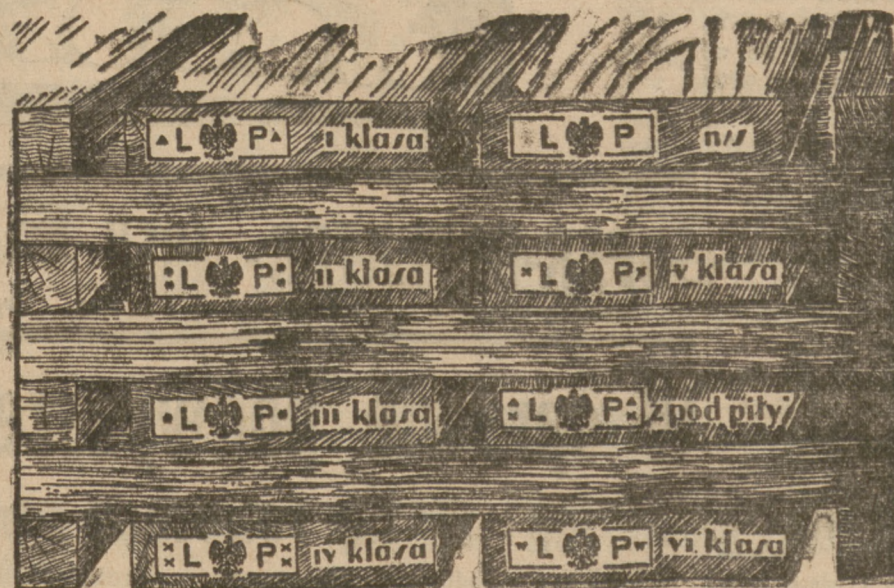 L P I klasa L P n/s
L P II klasa L P V klasa
L P III klasa L P z pod piły
L P IV klasa L P VI klasa